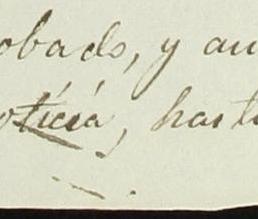 obado, y au
oticia, hast